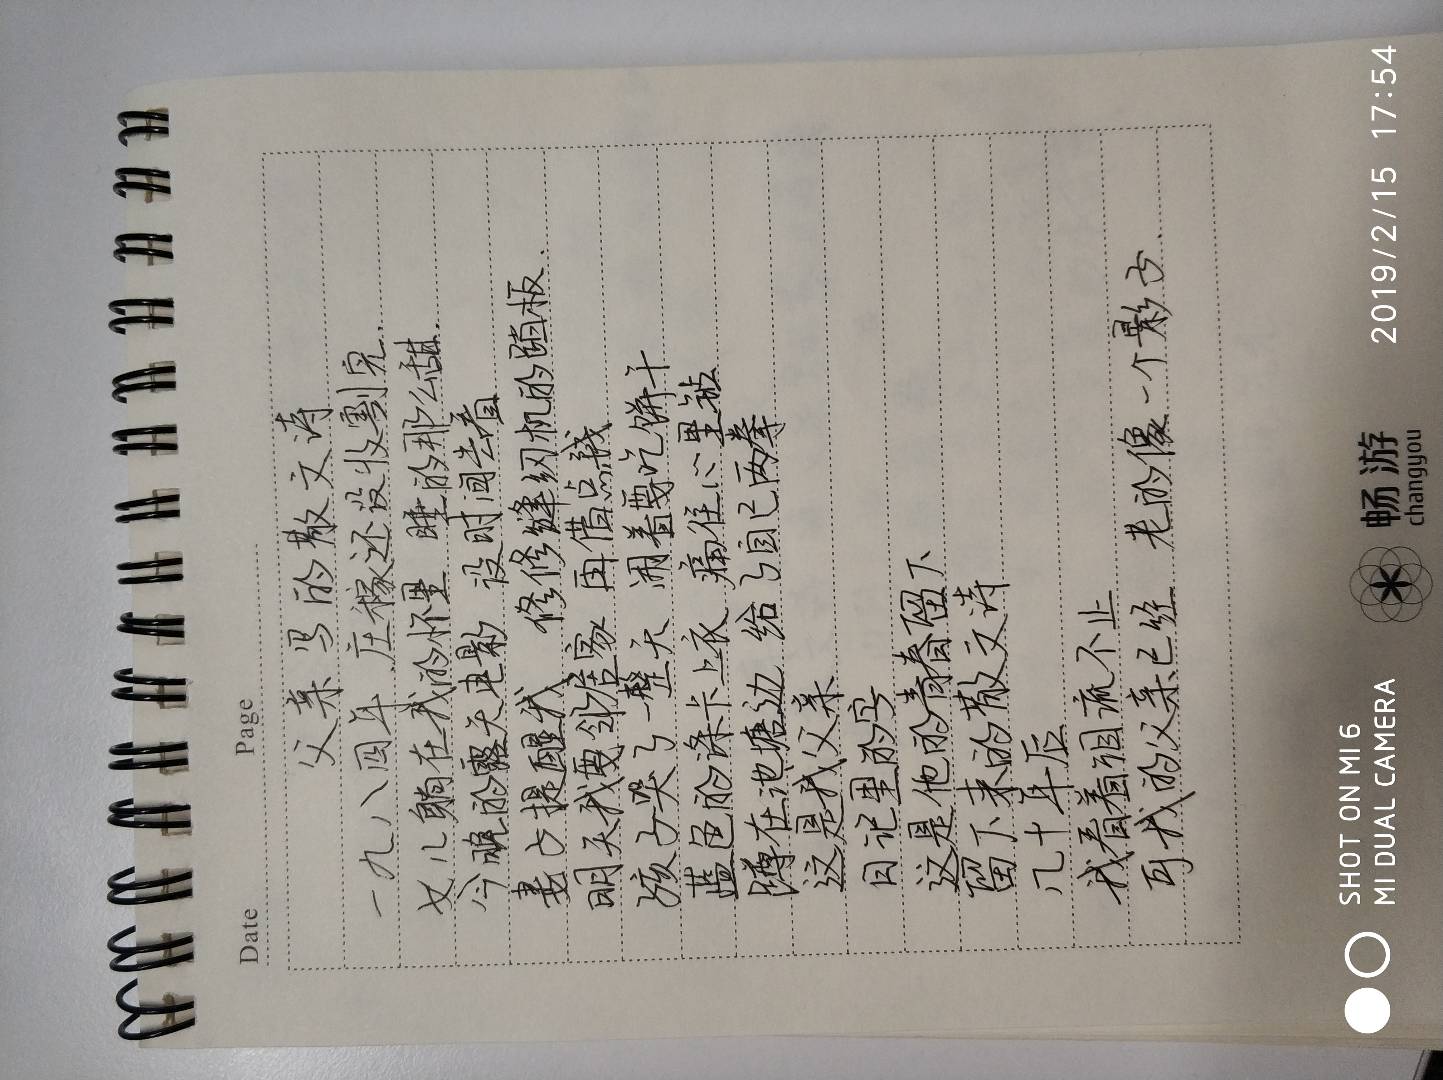 Date Page
父亲写的散文诗
一九八四年,庄稼还没收割完.
女儿躺在我的怀里 睡的那么甜.
今晚的露天电影 没时间去看
妻子提醒我 修修缝纫机的踏板.
明天我要邻居家 再借点钱
孩子哭了一整天 闹着要吃饼干
蓝色的涤卡上衣 痛往心里钻
蹲在池塘边 给了自己两拳
这是我父亲
日记里的字
这是他的青春留下
留下来的散文诗
几十年后
我看着泪流不止
可我的父亲已经 老的像一个影子.
SHOT ON MI 6
MI DUAL CAMERA
畅游
changyou
2019/2/15 17:54